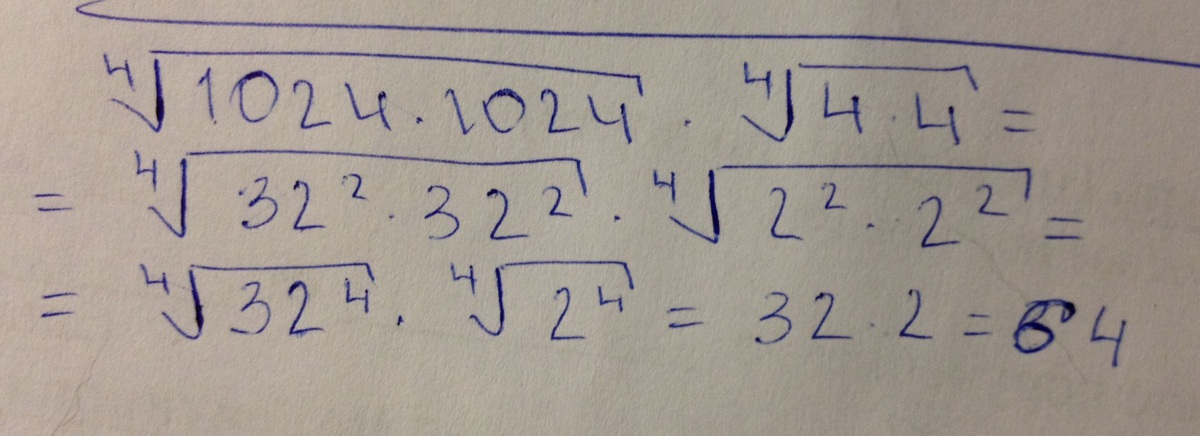 ∜1024·1024 · ∜4·4 =
= ∜32²·32² · ∜2²·2² =
= ∜32⁴ · ∜2⁴ = 32·2 = 64